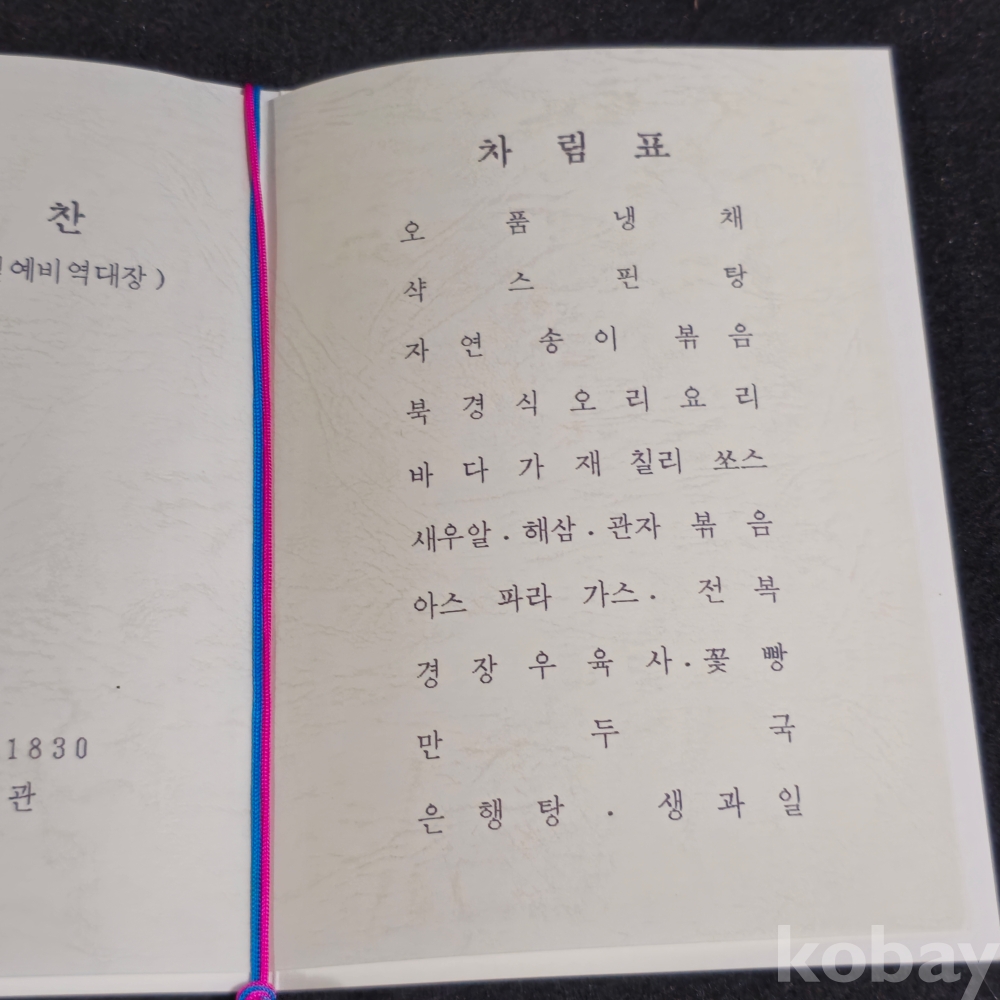 찬
예비역대장)
1830
관
차림표
오품냉채
샥스핀탕
자연 송이 볶음
북경식오리요리
바다가재 칠리 쏘스
새우알·해삼·관자 볶음
아스파라가스· 전복
경장우육사·꽃빵
만두국
은행탕·생과일
kobay